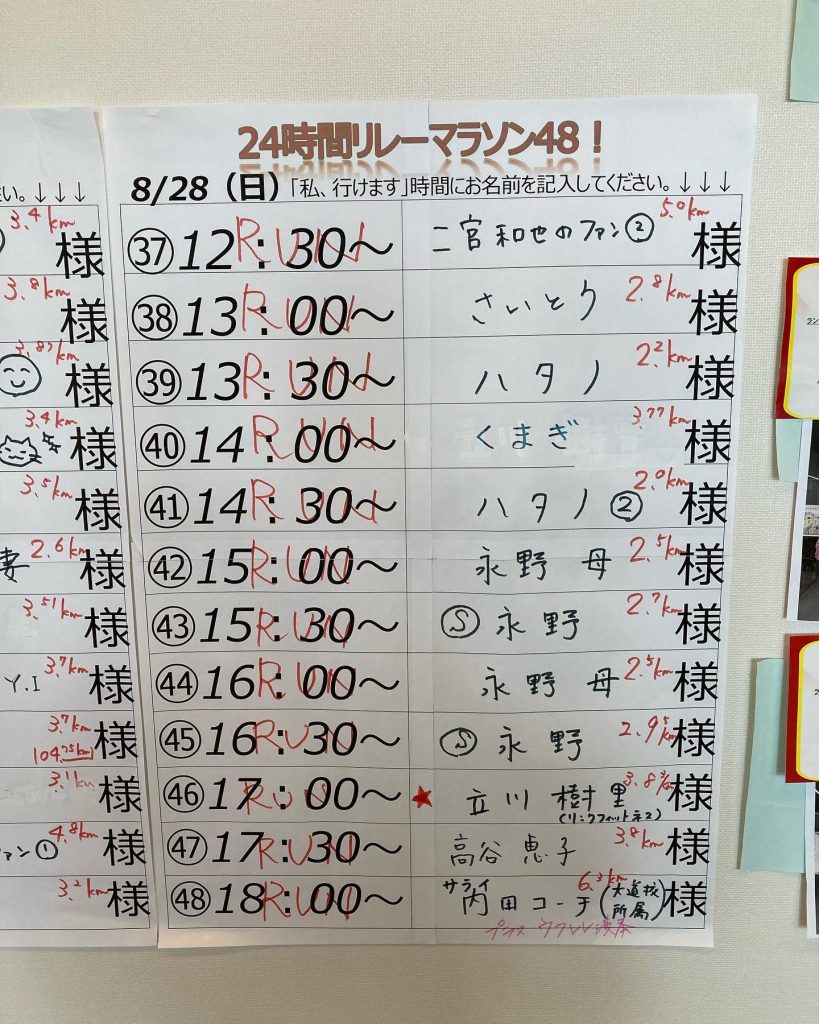 24時間リレーマラソン48！
8/28（日）「私、行けます」時間にお名前を記入してください。↓↓↓
い。↓↓↓
3.4km 様
3.8km 様
3.87km 様
3.4km 様
3.5km 様
妻 2.6km 様
3.51km 様
Y.I 3.7km 様
3.7km 104.75km 様
3.1km 様
ァン① 4.8km 様
3.2km 様
㊲12：30～ RUN 二宮和也のファン② 5.0km 様
㊳13：00～ RUN さいとう 2.8km 様
㊴13：30～ RUN ハタノ 2.2km 様
㊵14：00～ RUN くまぎ 3.77km 様
㊶14：30～ RUN ハタノ② 2.0km 様
㊷15：00～ RUN 永野 母 2.5km 様
㊸15：30～ RUN Ⓢ 永野 2.7km 様
㊹16：00～ RUN 永野 母 2.5km 様
㊺16：30～ RUN Ⓢ 永野 2.95km 様
㊻17：00～ RUN ★ 立川 樹里 3.8 km 様
(リンクフィットネス)
㊼17：30～ RUN 高谷 恵子 3.8km 様
㊽18：00～ RUN 内田コーチ(大道校所属) 6.3km 様